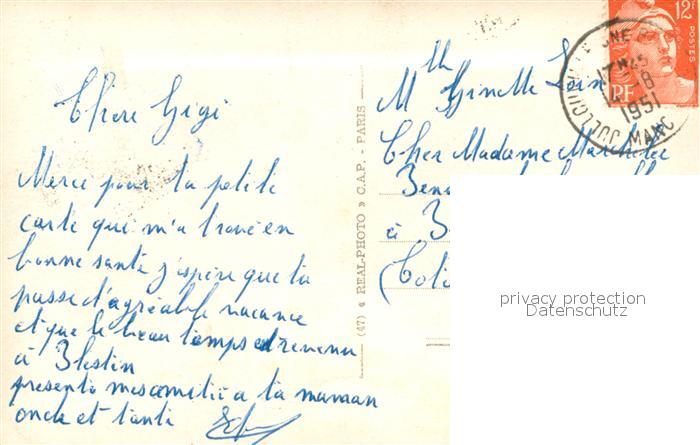 Chère Gigi
Merci pour ta petite
carte qui m'a trouvé en
bonne santé j'espère que tu
passe d'agréable vacance
et que le beau temps est revenu
à
presente mes amitié a ta maman
oncle et tante
(47) « REAL-PHOTO » C.A.P. - PARIS
Mlle Ginette
Chez Madame
à
12F
POSTES
RF
JULLOUVILLE
MANCHE
1951
privacy protection
Datenschutz